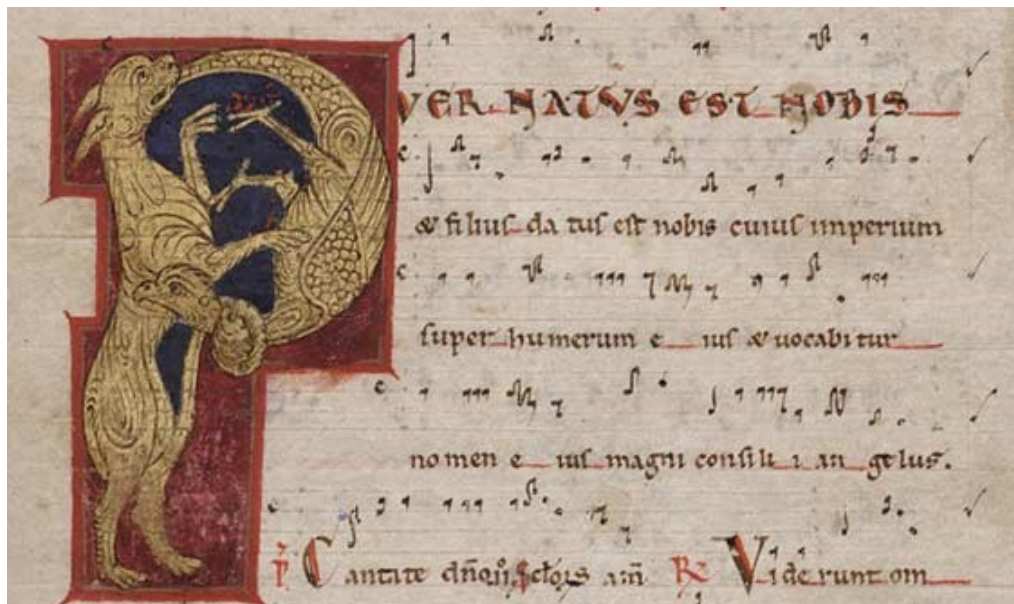 PVER NATVS EST NOBIS
& filius da tus est nobis cuius imperium
super humerum e ius & uocabi tur
nomen e ius magni consili i an gelus.
Cantate Viderunt om